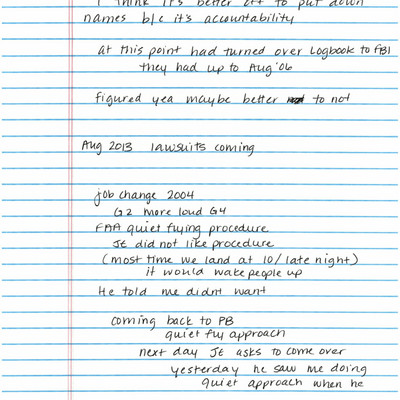 I think it's better off to put down
names b/c it's accountability
at this point had turned over Logbook to FBI
they had up to Aug '06
figured yea maybe better to not
Aug 2013 lawsuits coming
job change 2004
G2 more loud G4
FAA quiet flying procedure
JE did not like procedure
(most time we land at 10/late night)
it would wake people up
He told me didnt want
coming back to PB
quiet fly approach
next day JE asks to come over
yesterday he saw me doing
quiet approach when he